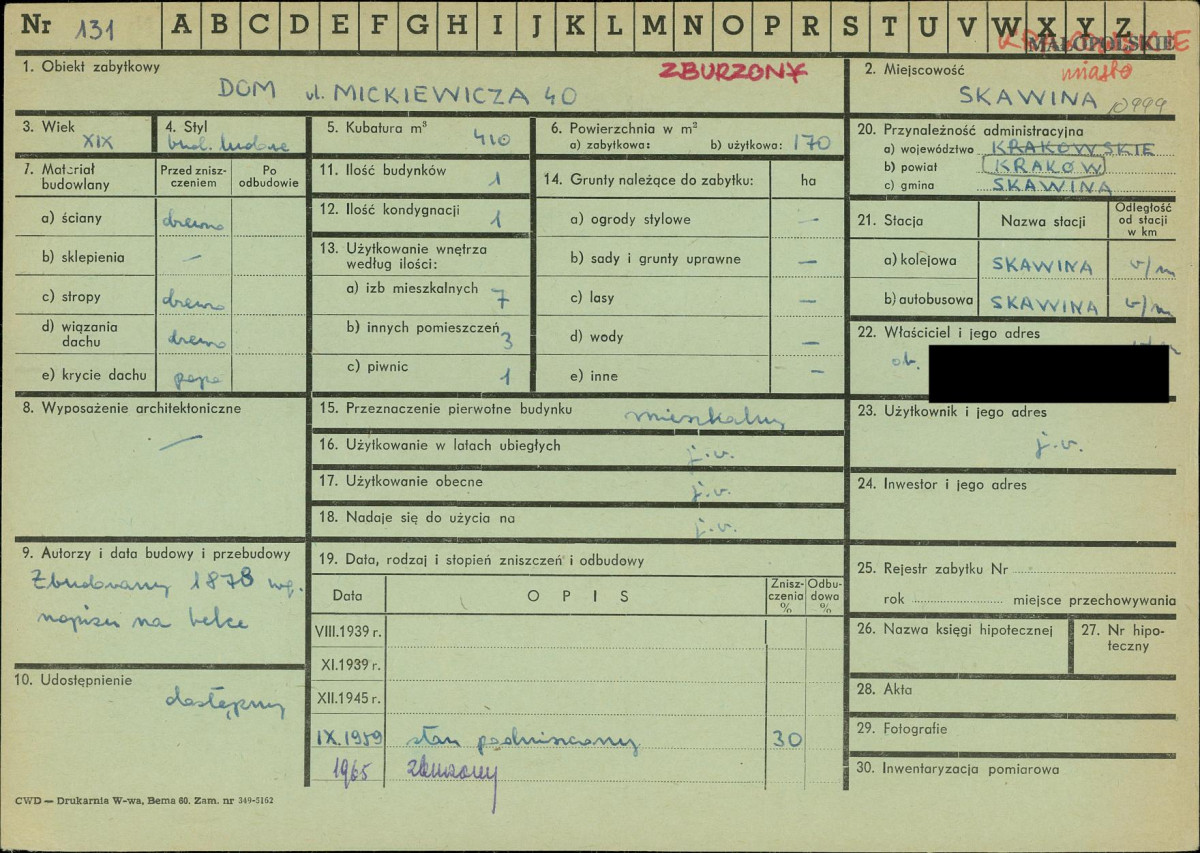 Nr 131 A B C D E F G H I J K L M N O P R S T U V W X Y Z
MAŁOPOLSKIE
1. Obiekt zabytkowy
ZBURZONY
DOM ul. MICKIEWICZA 40
2. Miejscowość
miasto
SKAWINA
3. Wiek
XIX
4. Styl
bud. ludowe
5. Kubatura m³
410
6. Powierzchnia w m²
a) zabytkowa: b) użytkowa: 170
20. Przynależność administracyjna
a) województwo KRAKOWSKIE
b) powiat KRAKÓW
c) gmina SKAWINA
7. Materiał budowlany
Przed znisz-
czeniem
Po
odbudowie
a) ściany drewno
b) sklepienia —
c) stropy drewno
d) wiązania
dachu drewno
e) krycie dachu papa
11. Ilość budynków 1
12. Ilość kondygnacji 1
13. Użytkowanie wnętrza
według ilości:
a) izb mieszkalnych 7
b) innych pomieszczeń 3
c) piwnic 1
14. Grunty należące do zabytku: ha
a) ogrody stylowe —
b) sady i grunty uprawne —
c) lasy —
d) wody —
e) inne —
21. Stacja Nazwa stacji Odległość
od stacji
w km
a) kolejowa SKAWINA v/m
b) autobusowa SKAWINA v/m
22. Właściciel i jego adres
ob.
8. Wyposażenie architektoniczne
—
15. Przeznaczenie pierwotne budynku mieszkalny
16. Użytkowanie w latach ubiegłych j.w.
17. Użytkowanie obecne j.w.
18. Nadaje się do użycia na j.w.
23. Użytkownik i jego adres
j.w.
24. Inwestor i jego adres
9. Autorzy i data budowy i przebudowy
Zbudowany 1878 wg.
napisu na belce
10. Udostępnienie
dostępny
19. Data, rodzaj i stopień zniszczeń i odbudowy
Data OPIS Znisz-
czenia
% Odbu-
dowa
%
VIII.1939 r.
XI.1939 r.
XII.1945 r.
IX.1959 stan podniszczony 30
1965 zburzony
25. Rejestr zabytku Nr
rok miejsce przechowywania
26. Nazwa księgi hipotecznej
27. Nr hipo-
teczny
28. Akta
29. Fotografie
30. Inwentaryzacja pomiarowa
CWD — Drukarnia W-wa, Bema 60. Zam. nr 349-5162